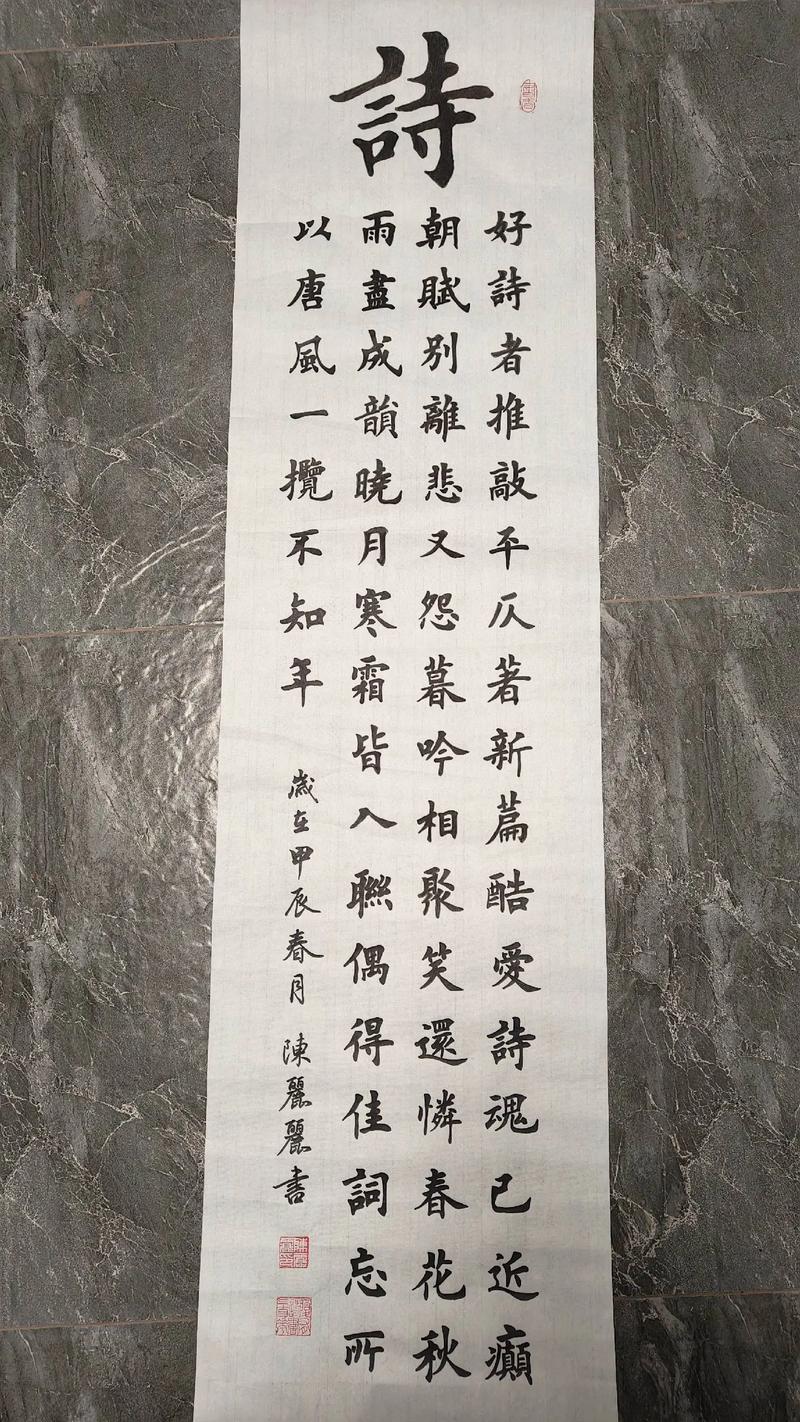 詩
好詩者推敲平仄著新篇酷愛詩魂已近癲
朝賦別離悲又怨暮吟相聚笑還憐春花秋
雨盡成韻曉月寒霜皆入聯偶得佳詞忘所
以唐風一攬不知年
歲在甲辰春月 陳麗麗書